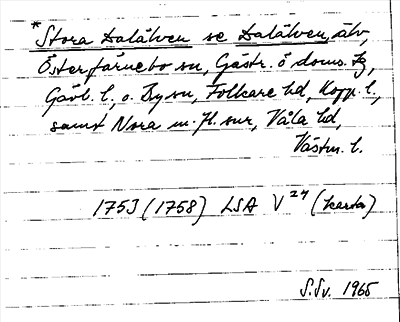 * Stora Dalälven se Dalälven, älv,
Österfärnebo sn, Gästr. ö doms. hg,
Gävl. l., o. By sn, Folkare hd, Kopp. l.,
samt Nora m. fl. snr, Våla hd,
Västm. l.
1753 (1758) LSA V 24 (karta)
S.Sv. 1965